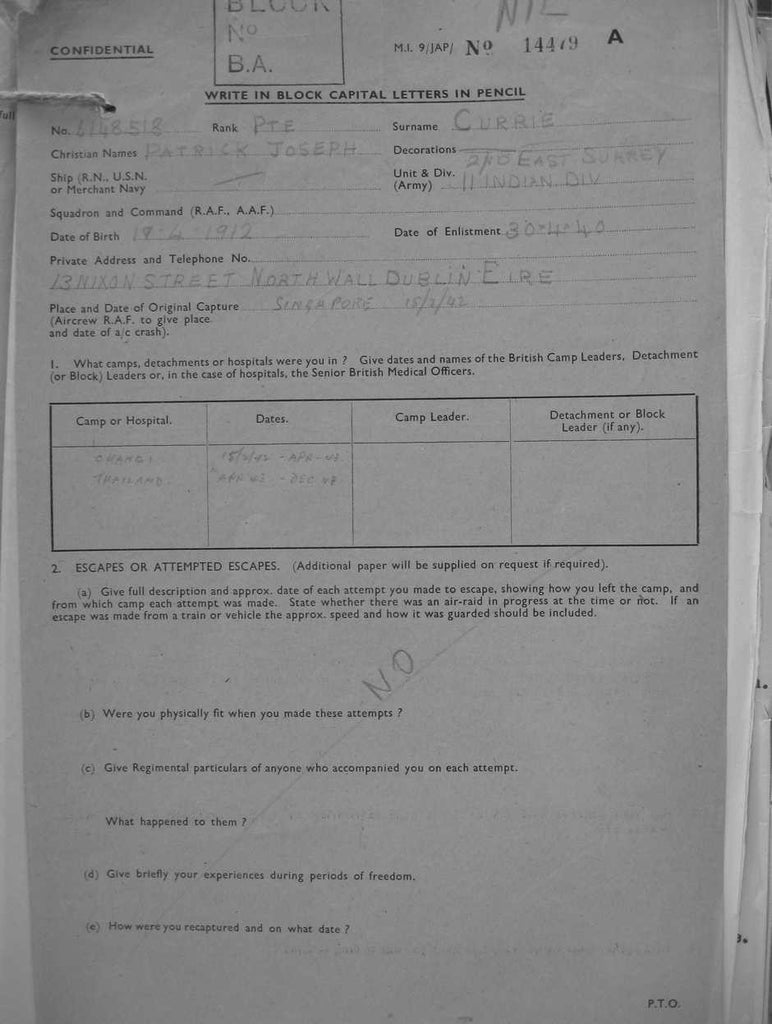 BLOCK
NIL
No
B.A.
CONFIDENTIAL
M.I. 9/JAP/ No 14479 A
WRITE IN BLOCK CAPITAL LETTERS IN PENCIL
full
No. 6148518 Rank PTE Surname CURRIE
Christian Names PATRICK JOSEPH Decorations
2ND EAST SURREY
Ship (R.N., U.S.N. or Merchant Navy
Unit & Div. (Army) 11 INDIAN DIV
Squadron and Command (R.A.F., A.A.F.)
Date of Birth 19-4-1912 Date of Enlistment 30-4-40
Private Address and Telephone No.
13 NIXON STREET NORTH WALL DUBLIN EIRE
Place and Date of Original Capture SINGAPORE 15/2/42
(Aircrew R.A.F. to give place
and date of a/c crash).
1. What camps, detachments or hospitals were you in ? Give dates and names of the British Camp Leaders, Detachment
(or Block) Leaders or, in the case of hospitals, the Senior British Medical Officers.
Camp or Hospital. Dates. Camp Leader. Detachment or Block Leader (if any).
CHANGI 15/2/42 - APR-43
THAILAND. APR 43 - DEC 43
2. ESCAPES OR ATTEMPTED ESCAPES. (Additional paper will be supplied on request if required).
(a) Give full description and approx. date of each attempt you made to escape, showing how you left the camp, and
from which camp each attempt was made. State whether there was an air-raid in progress at the time or not. If an
escape was made from a train or vehicle the approx. speed and how it was guarded should be included.
NO
(b) Were you physically fit when you made these attempts ?
(c) Give Regimental particulars of anyone who accompanied you on each attempt.
What happened to them ?
(d) Give briefly your experiences during periods of freedom.
(e) How were you recaptured and on what date ?
P.T.O.